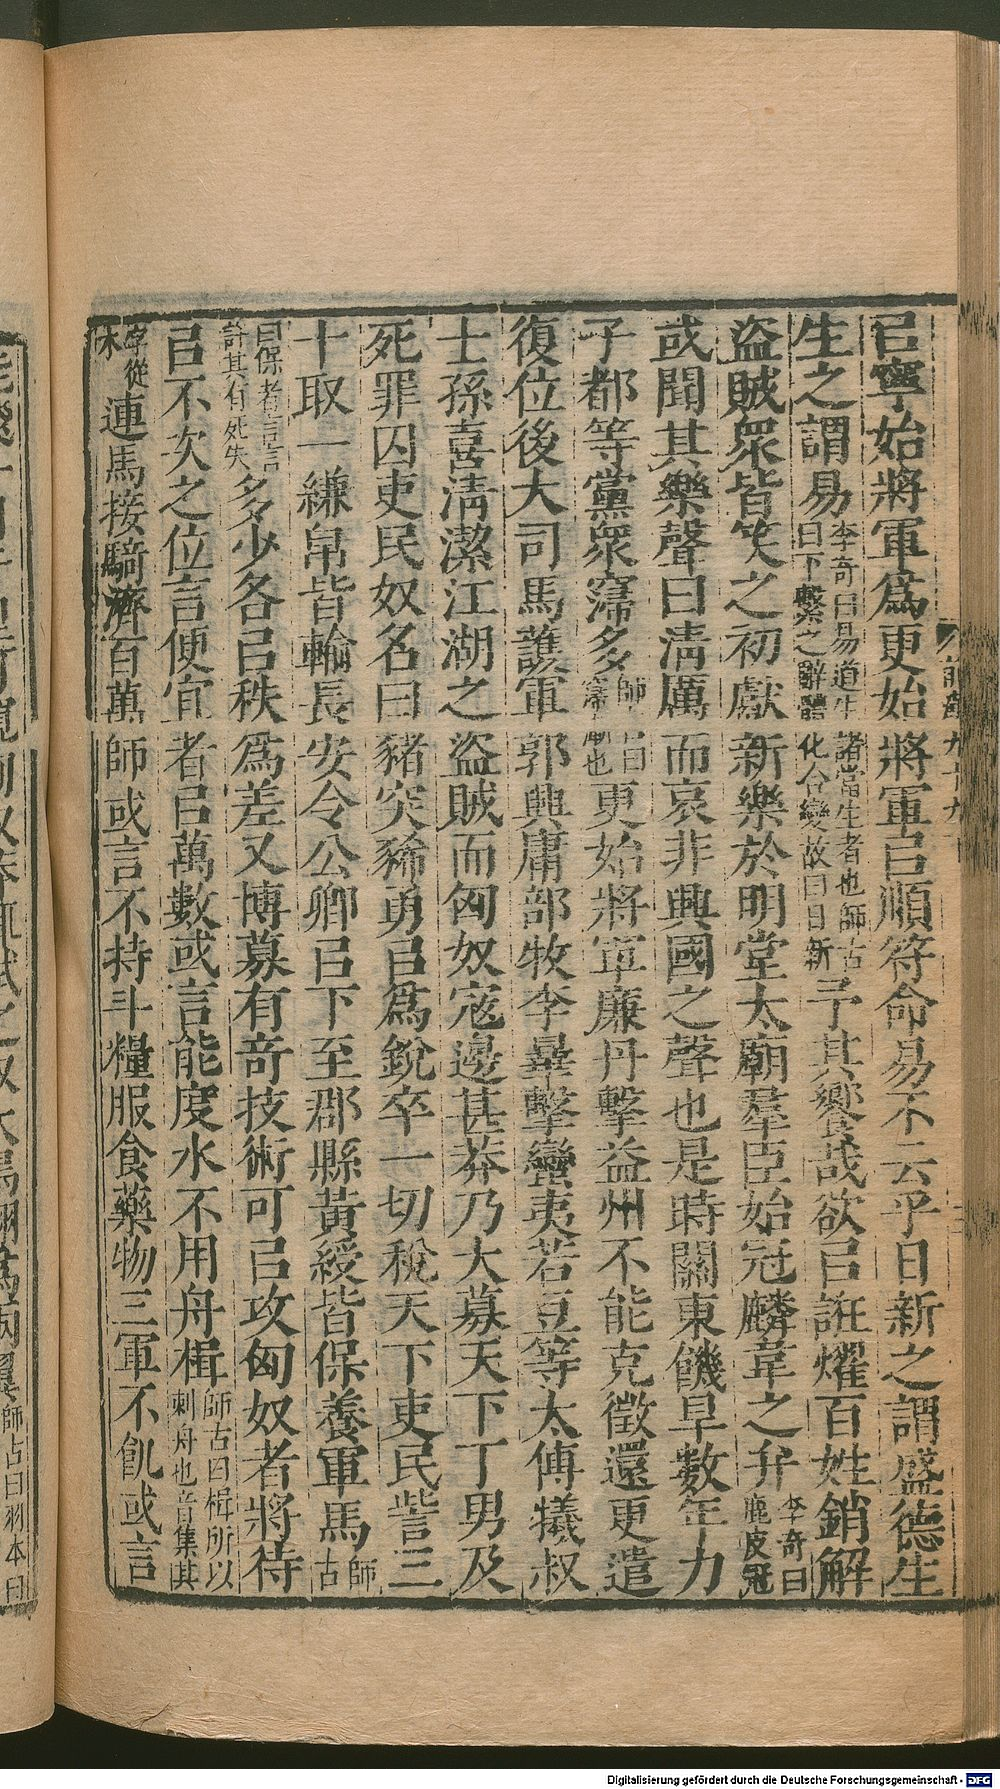 㠯寧始將軍爲更始將軍㠯順符命易不云乎日新之謂盛德生
生之謂易李奇曰易道生諸當生者也師古曰下繫之辭體化合變故曰日新予其饗哉欲㠯誑燿百姓銷解
盜賊衆皆笑之初獻新樂於明堂太廟羣臣始冠麟韋之弁李奇曰鹿皮冠
或聞其樂聲曰清厲而哀非興國之聲也是時關東饑旱數年力
子都等黨衆𥧑多師古曰更始將軍廉丹擊益州不能克徵還更遣
復位後大司馬護軍郭興庸部牧李𣋒擊蠻夷若豆等太傅犧叔
士孫喜清潔江湖之盜賊而匈奴寇邊甚莽乃大募天下丁男及
死罪囚吏民奴名曰豬突豨勇㠯爲銳卒一切稅天下吏民訾三
十取一縑帛皆輸長安令公卿㠯下至郡縣黃綬皆保養軍馬師古
曰保者言言許其有死失多少各㠯秩爲差又博募有奇技術可㠯攻匈奴者將待
㠯不次之位言便宜者㠯萬數或言能度水不用舟楫師古曰楫所以刺舟也音集其
字從木連馬接騎濟百萬師或言不持斗糧服食藥物三軍不飢或言
前漢九十九
師古曰羽本曰
Digitalisierung gefördert durch die Deutsche Forschungsgemeinschaft - DFG